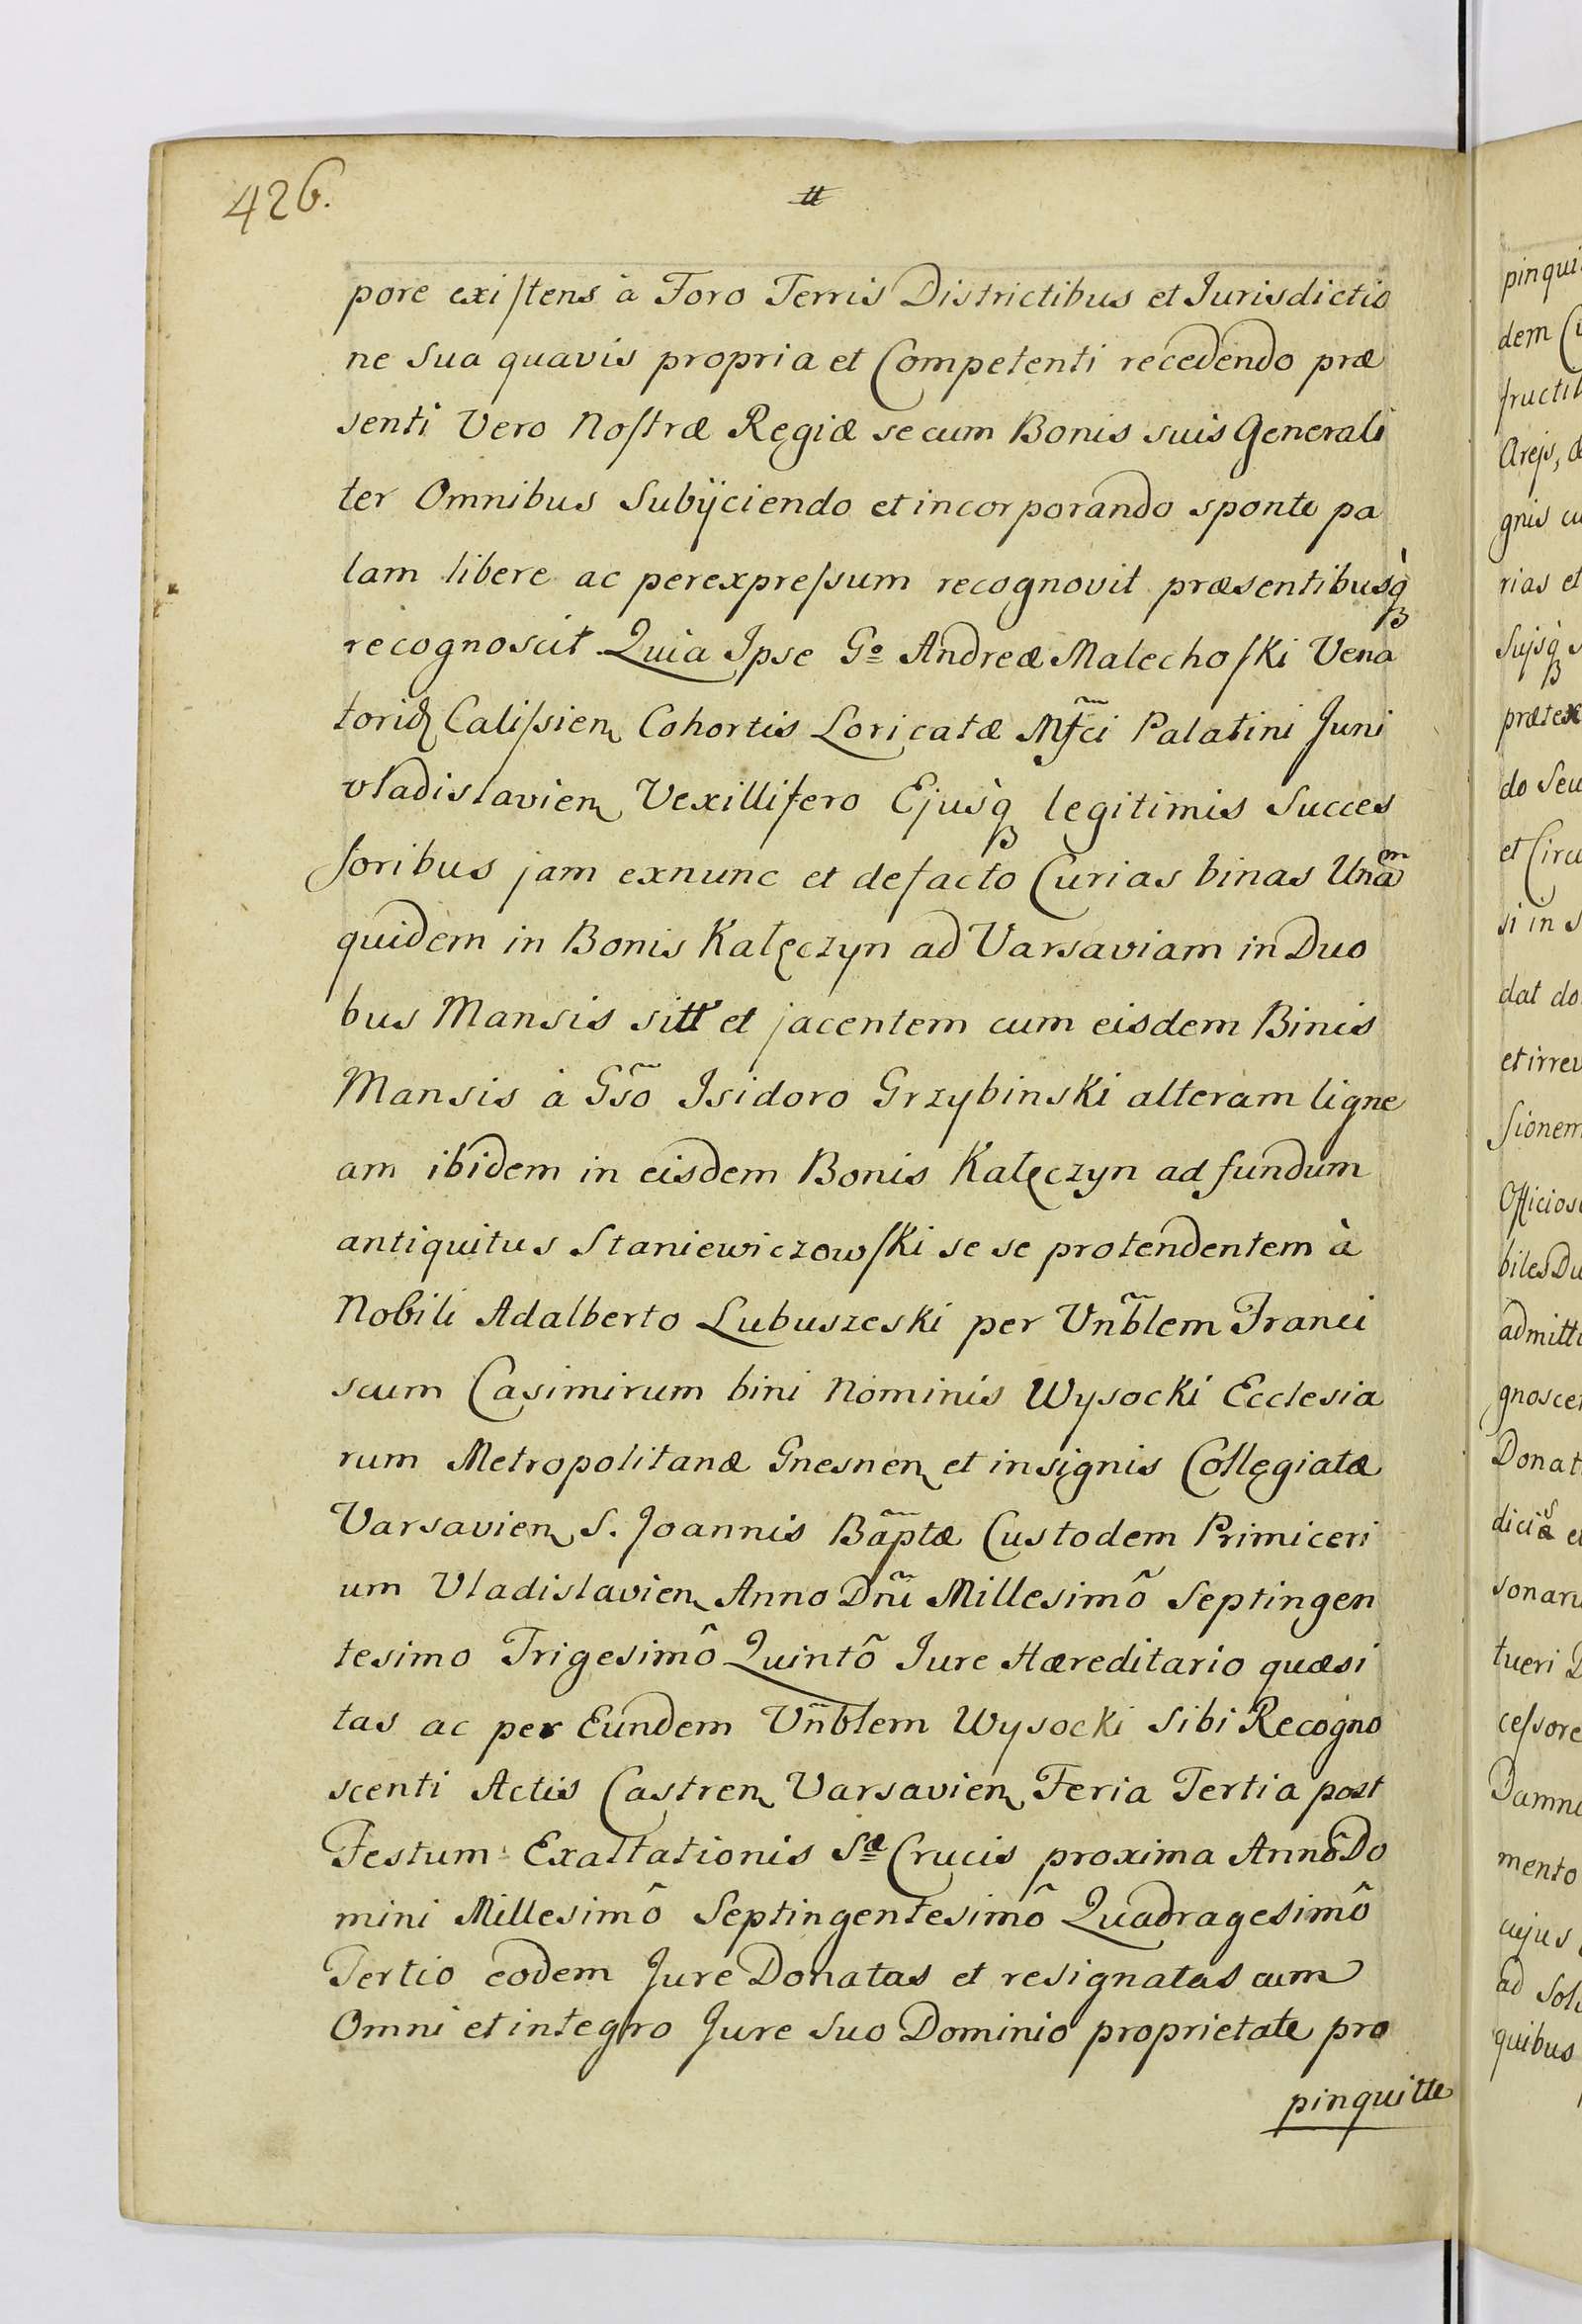 426.
tt
pore exiſtens à Foro Terris Districtibus et Jurisdictio
ne sua quavis propria et Competenti recedendo præ
senti Vero Noſtræ Regiæ se cum Bonis suis Generali
ter Omnibus Subÿciendo et incorporando sponte pa
lam libere ac perexpreſsum recognovit præsentibusq̀
recognoscit Quia Ipse Go Andreæ Malechoſki Vena
Caliſsien Cohortis Loricatæ Mf̃ci Palatini Juni
vladislavien Vexillifero Ejusq̀ legitimis Succes
ſoribus jam exnunc et defacto Curias binas Unam
quidem in Bonis Kałęczyn ad Varsaviam in Duo
bus Mansis sitt et jacentem cum eisdem Binis
Mansis à Gs̃o Isidoro Grzybinski alteram ligne
am ibidem in eisdem Bonis Kałęczyn ad fundum
antiquitus Staniewiczowſki se se protendentem à
Nobili Adalberto Lubuszeski per Vñblem Franci
scum Casimirum bini Nominis Wysocki Ecclesia
rum Metropolitanæ Gnesnen et insignis Collegiatæ
Varsavien S. Joannis Bãptæ Custodem Primiceri
um Vladislavien Anno Dñi Millesimô Septingen
tesimo Trigesimô Quintô Jure Hæreditario quæsi
tas ac per Eundem Vñblem Wysocki Sibi Recogno
scenti Actis Castren Varsavien Feria Tertia post
Festum Exaltationis Sæ Crucis proxima Annô Do
mini Millesimô Septingentesimô Quadragesimô
Tertio eodem Jure Donatas et resignatas cum
Omni et integro Jure suo Dominio proprietate pro
pinquitte
pinqui
dem
fructi
Arejs,
gnis cu
rias et
Sujsq
prætex
do Seu
et Circu
si in s
dat do
et irrev
ſionem
Officios
biles Du
admitt
gnosce
Donat
sonaru
tueri
ceſsore
Damn
mento
cujus
ad Sol
quibus